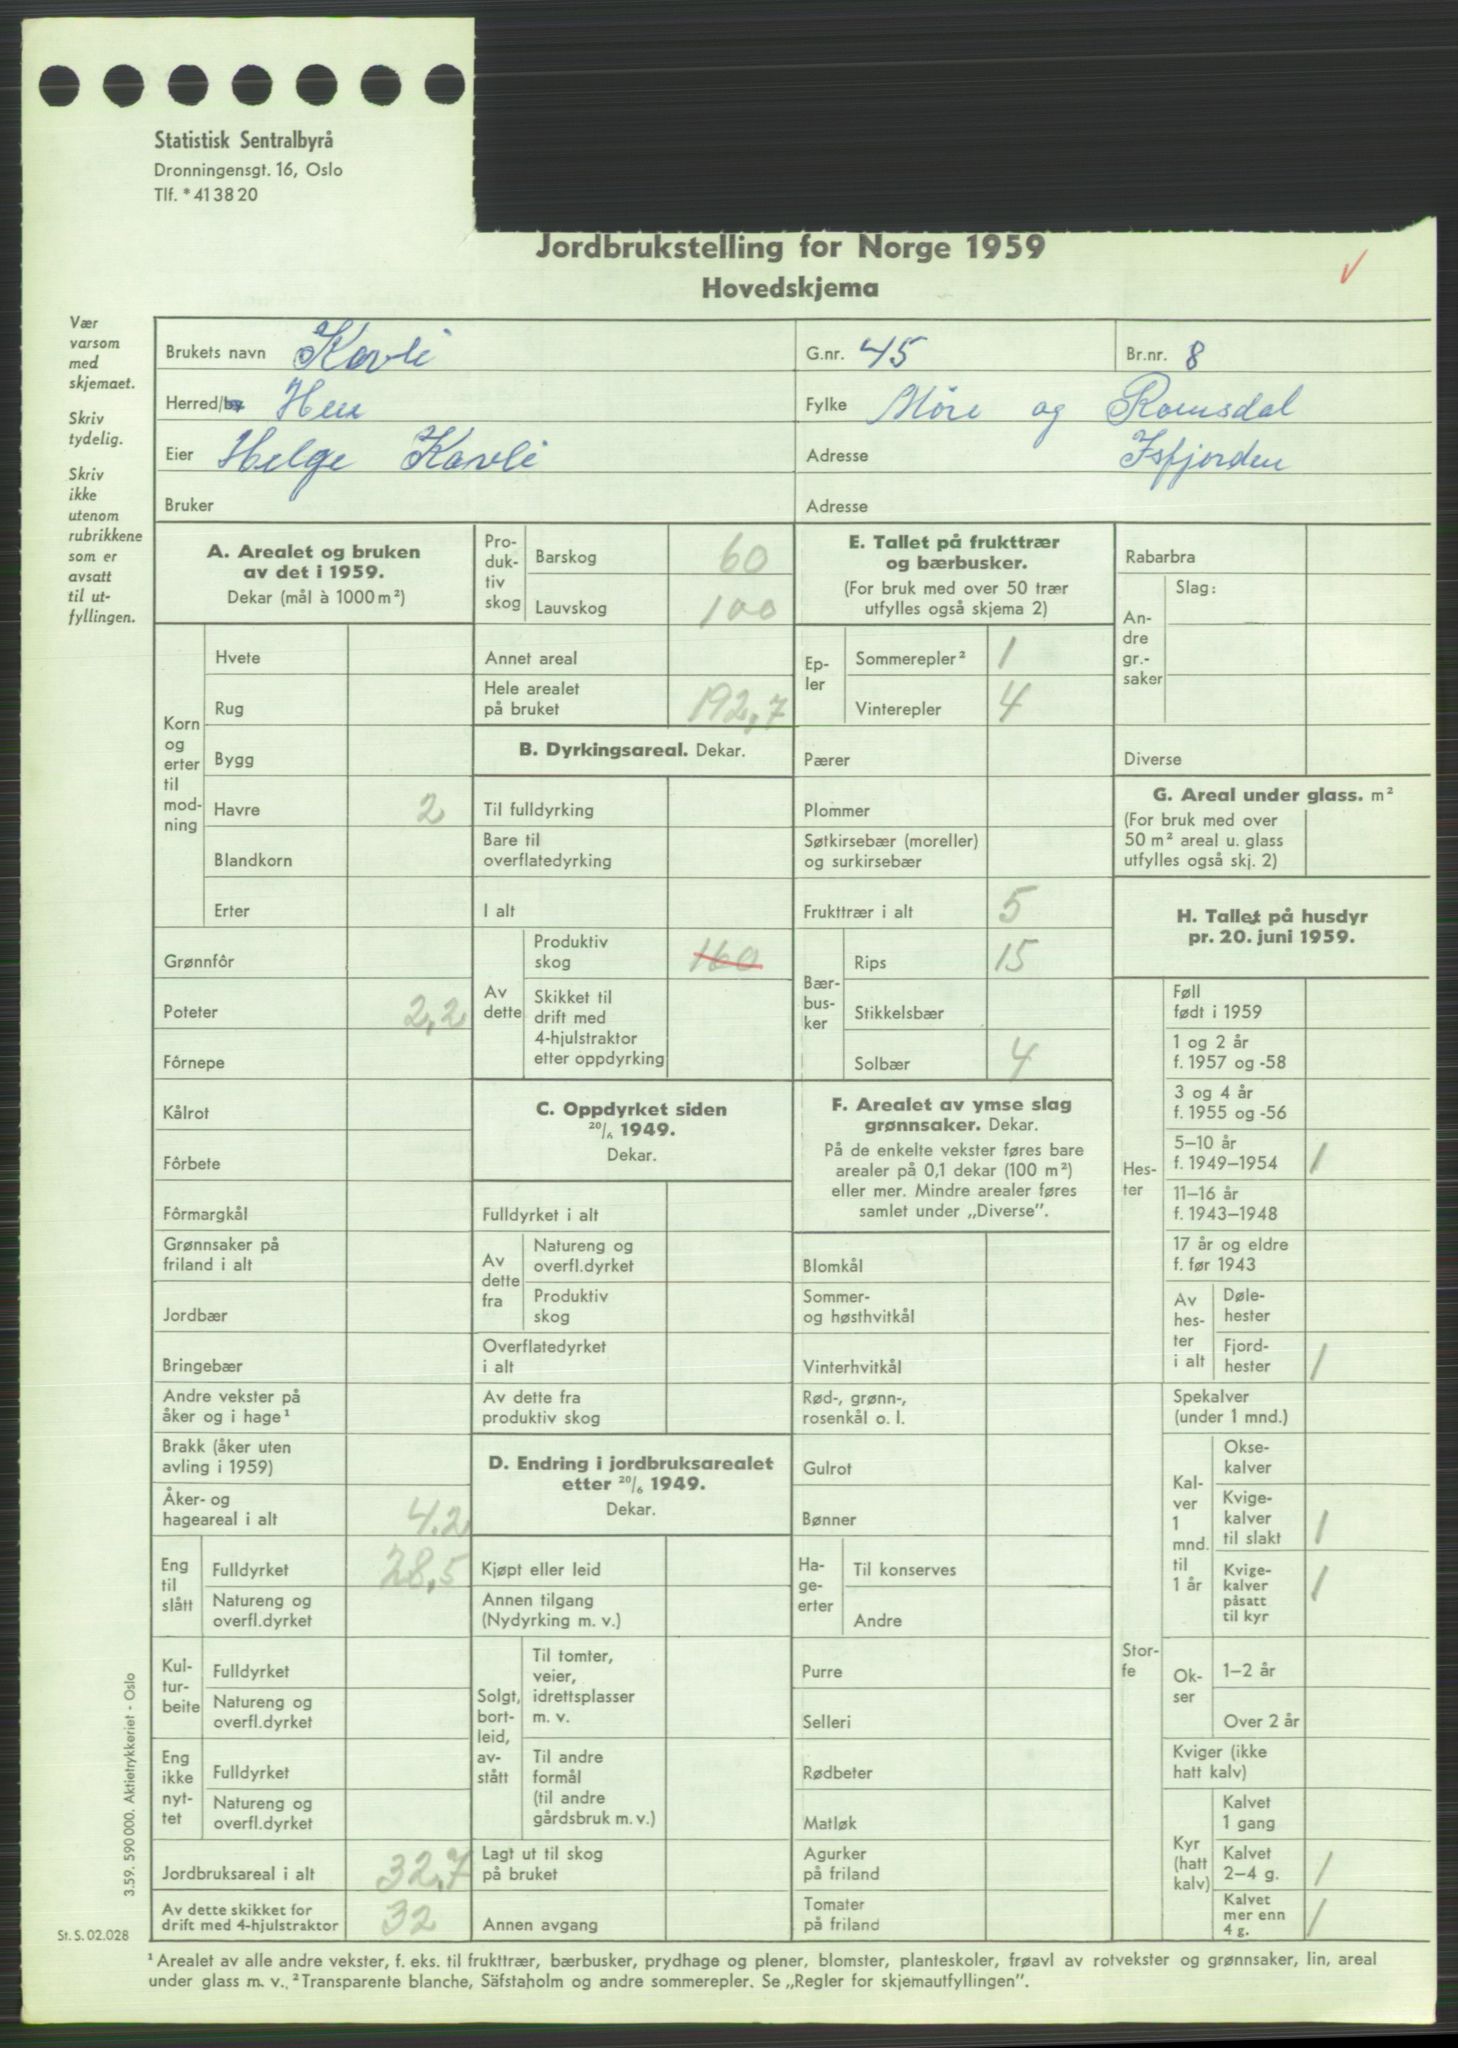 Statistisk Sentralbyrå
Dronningensgt. 16, Oslo
Tlf. *41 38 20
Jordbrukstelling for Norge 1959
Hovedskjema
Vær
varsom
med
skjemaet.
Skriv
tydelig.
Skriv
ikke
utenom
rubrikkene
som er
avsatt
til ut-
fyllingen.
Brukets navn Kavli
G.nr. 45
Br.nr. 8
Herred/by Hen
Fylke Møre og Romsdal
Eier Helge Kavli
Adresse Isfjorden
Bruker
Adresse
A. Arealet og bruken
av det i 1959.
Dekar (mål à 1000 m²)
Korn
og
erter
til
mod-
ning
Hvete
Rug
Bygg
Havre 2
Blandkorn
Erter
Grønnfôr
Poteter 2,2
Fôrnepe
Kålrot
Fôrbete
Fôrmargkål
Grønnsaker på
friland i alt
Jordbær
Bringebær
Andre vekster på
åker og i hage¹
Brakk (åker uten
avling i 1959)
Åker- og
hageareal i alt 4.2
Eng
til
slått
Fulldyrket 28,5
Natureng og
overfl.dyrket
Kul-
tur-
beite
Fulldyrket
Natureng og
overfl.dyrket
Eng
ikke
nyt-
tet
Fulldyrket
Natureng og
overfl.dyrket
Jordbruksareal i alt 32,7
Av dette skikket for
drift med 4-hjulstraktor 32
Pro-
duk-
tiv
skog
Barskog 60
Lauvskog 100
Annet areal
Hele arealet
på bruket 192,7
B. Dyrkingsareal. Dekar.
Til fulldyrking
Bare til
overflatedyrking
I alt
Av
dette
Produktiv
skog 160
Skikket til
drift med
4-hjulstraktor
etter oppdyrking
C. Oppdyrket siden
20/6 1949.
Dekar.
Fulldyrket i alt
Av
dette
fra
Natureng og
overfl.dyrket
Produktiv
skog
Overflatedyrket
i alt
Av dette fra
produktiv skog
D. Endring i jordbruksarealet
etter 20/6 1949.
Dekar.
Kjøpt eller leid
Annen tilgang
(Nydyrking m. v.)
Solgt,
bort-
leid,
av-
stått
Til tomter,
veier,
idrettsplasser
m. v.
Til andre
formål
(til andre
gårdsbruk m. v.)
Lagt ut til skog
på bruket
Annen avgang
E. Tallet på frukttrær
og bærbusker.
(For bruk med over 50 trær
utfylles også skjema 2)
Ep-
ler
Sommerepler² 1
Vinterepler 4
Pærer
Plommer
Søtkirsebær (moreller)
og surkirsebær
Frukttrær i alt 5
Bær-
bus-
ker
Rips 15
Stikkelsbær
Solbær 4
F. Arealet av ymse slag
grønnsaker. Dekar.
På de enkelte vekster føres bare
arealer på 0,1 dekar (100 m²)
eller mer. Mindre arealer føres
samlet under „Diverse”.
Blomkål
Sommer-
og høsthvitkål
Vinterhvitkål
Rød-, grønn-,
rosenkål o. l.
Gulrot
Bønner
Ha-
ge-
erter
Til konserves
Andre
Purre
Selleri
Rødbeter
Matløk
Agurker
på friland
Tomater
på friland
Rabarbra
An-
dre
gr.-
saker
Slag:
Diverse
G. Areal under glass. m²
(For bruk med over
50 m² areal u. glass
utfylles også skj. 2)
H. Tallet på husdyr
pr. 20. juni 1959.
Hes-
ter
Føll
født i 1959
1 og 2 år
f. 1957 og -58
3 og 4 år
f. 1955 og -56
5–10 år
f. 1949–1954 1
11–16 år
f. 1943–1948
17 år og eldre
f. før 1943
Av
hes-
ter
i alt
Døle-
hester
Fjord-
hester 1
Stor-
fe
Spekalver
(under 1 mnd.)
Kal-
ver
1
mnd.
til
1 år
Okse-
kalver
Kvige-
kalver
til slakt 1
Kvige-
kalver
påsatt
til kyr 1
Ok-
ser
1–2 år
Over 2 år
Kviger (ikke
hatt kalv)
Kyr
(hatt
kalv)
Kalvet
1 gang
Kalvet
2–4 g. 1
Kalvet
mer enn
4 g. 1
3.59. 590 000. Aktietrykkeriet - Oslo
St. S. 02.028
¹ Arealet av alle andre vekster, f. eks. til frukttrær, bærbusker, prydhage og plener, blomster, planteskoler, frøavl av rotvekster og grønnsaker, lin, areal
under glass m. v.. ² Transparente blanche, Säfstaholm og andre sommerepler. Se „Regler for skjemautfyllingen”.